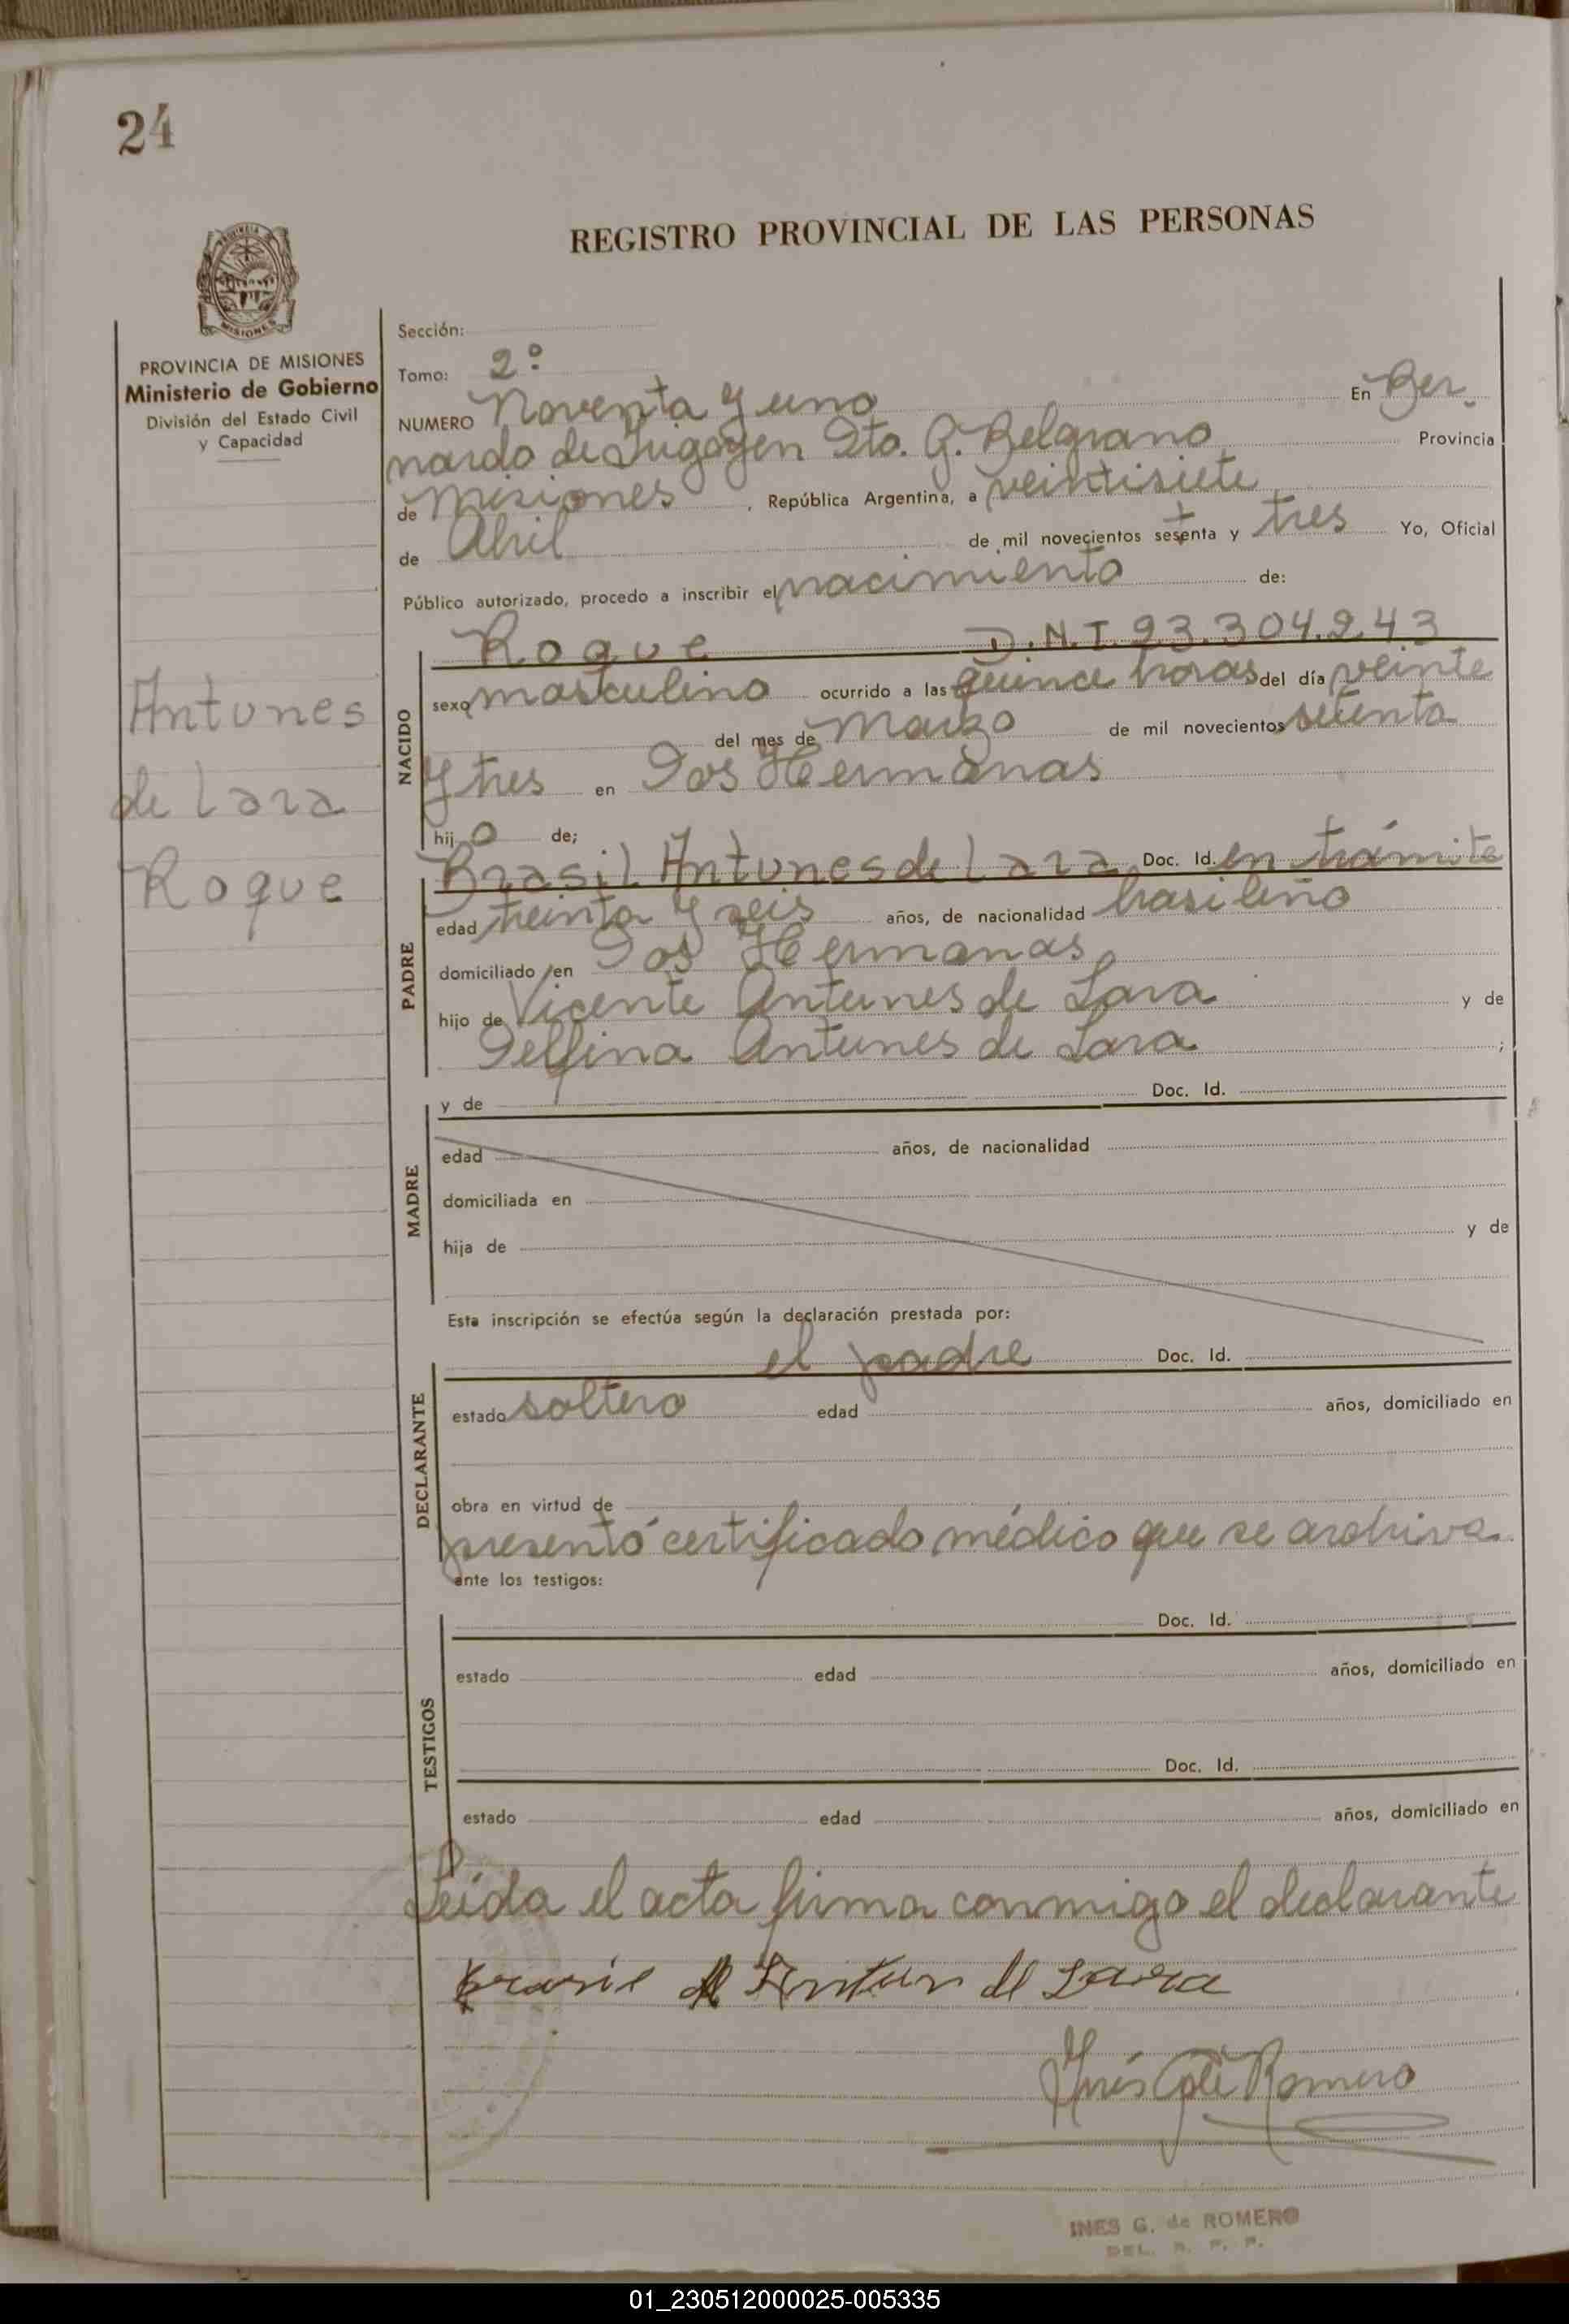 24
REGISTRO PROVINCIAL DE LAS PERSONAS
PROVINCIA DE MISIONES
Ministerio de Gobierno
División del Estado Civil
y Capacidad
Antunes
de Lara
Roque
Sección:
Tomo: 2º
NUMERO Noventa y uno En Ber.
nardo de Irigoyen Dto. G. Belgrano Provincia
de Misiones, República Argentina, a veintisiete
de Abril de mil novecientos setenta y tres Yo, Oficial
Público autorizado, procedo a inscribir el nacimiento de:
Roque D.N.I. 93.304.943
NACIDO
sexo masculino ocurrido a las quince horas del día veinte
del mes de Marzo de mil novecientos setenta
y tres en Dos Hermanas
hijo de;
Brasil Antunes de Lara Doc. Id. en trámite
PADRE
edad treinta y seis años, de nacionalidad brasileño
domiciliado en Dos Hermanas
hijo de Vicente Antunes de Lara y de
Delfina Antunes de Lara ;
y de Doc. Id.
MADRE
edad años, de nacionalidad
domiciliada en
hija de y de
Esta inscripción se efectúa según la declaración prestada por:
el padre Doc. Id.
DECLARANTE
estado soltero edad años, domiciliado en
obra en virtud de
presentó certificado médico que se archiva
ante los testigos:
Doc. Id.
TESTIGOS
estado edad años, domiciliado en
Doc. Id.
estado edad años, domiciliado en
Leida el acta firma conmigo el declarante
de Lara
Inés G. de Romero
INES G. de ROMERO
DEL. R. P. P.
01_230512000025-005335